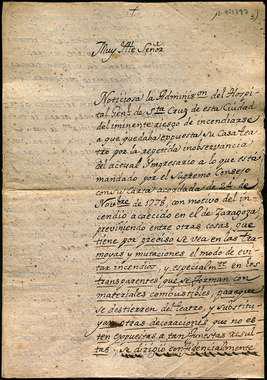 Muy Ill.e Señor
Noticiosa la Administ.on del Hospi-
tal Gen.l de S.ta Cruz de esta Ciudad
del iminente riesgo de incendiarse
a que quedaba expuesta su Casa Tea-
tro por la repetida inobservancia
del actual Impresario a lo que està
mandado por el Supremo Consejo
con su Carta acordada de 24 de
Nov.bre de 1778, con motivo del in-
cendio acaecido en el de Zaragoza
previniendo entre otras cosas, que
tiene por preciso se vea en las Tra-
moyas y mutaciones el modo de evi-
tar incendios, y especialm.te en los
transparentes que se forman con
materiales combustibles, para que
se destierren del teatro, y substitu-
yan otras decoraciones que no es-
ten expuestas a tan funestas resul-
tas, se dirigió confidencialmente